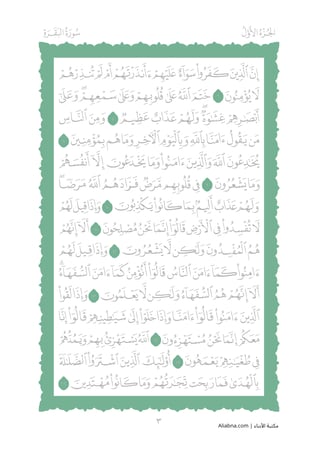 الجزء الأول
سورة البقرة
إِنَّ ٱلَّذِينَ كَفَرُوا۟ سَوَآءٌ عَلَيْهِمْ ءَأَنذَرْتَهُمْ أَمْ لَمْ تُنذِرْهُمْ
لَا يُؤْمِنُونَ ٦ خَتَمَ ٱللَّهُ عَلَىٰ قُلُوبِهِمْ وَعَلَىٰ سَمْعِهِمْ وَعَلَىٰٓ
أَبْصَٰرِهِمْ غِشَٰوَةٌ وَلَهُمْ عَذَابٌ عَظِيمٌ ٧ وَمِنَ ٱلنَّاسِ
مَن يَقُولُ ءَامَنَّا بِٱللَّهِ وَبِٱلْيَوْمِ ٱلْءَاخِرِ وَمَا هُم بِمُؤْمِنِينَ ٨
يُخَٰدِعُونَ ٱللَّهَ وَٱلَّذِينَ ءَامَنُوا۟ وَمَا يَخْدَعُونَ إِلَّآ أَنفُسَهُمْ
وَمَا يَشْعُرُونَ ٩ فِى قُلُوبِهِم مَّرَضٌ فَزَادَهُمُ ٱللَّهُ مَرَضًا
وَلَهُمْ عَذَابٌ أَلِيمٌۢ بِمَا كَانُوا۟ يَكْذِبُونَ ١٠ وَإِذَا قِيلَ لَهُمْ
لَا تُفْسِدُوا۟ فِى ٱلْأَرْضِ قَالُوٓا۟ إِنَّمَا نَحْنُ مُصْلِحُونَ ١١ أَلَآ إِنَّهُمْ
هُمُ ٱلْمُفْسِدُونَ وَلَٰكِن لَّا يَشْعُرُونَ ١٢ وَإِذَا قِيلَ لَهُمْ
ءَامِنُوا۟ كَمَآ ءَامَنَ ٱلنَّاسُ قَالُوٓا۟ أَنُؤْمِنُ كَمَآ ءَامَنَ ٱلسُّفَهَآءُ
أَلَآ إِنَّهُمْ هُمُ ٱلسُّفَهَآءُ وَلَٰكِن لَّا يَعْلَمُونَ ١٣ وَإِذَا لَقُوا۟
ٱلَّذِينَ ءَامَنُوا۟ قَالُوٓا۟ ءَامَنَّا وَإِذَا خَلَوْا۟ إِلَىٰ شَيَٰطِينِهِمْ قَالُوٓا۟ إِنَّا
مَعَكُمْ إِنَّمَا نَحْنُ مُسْتَهْزِءُونَ ١٤ ٱللَّهُ يَسْتَهْزِئُ بِهِمْ وَيَمُدُّهُمْ
فِى طُغْيَٰنِهِمْ يَعْمَهُونَ ١٥ أُو۟لَٰٓئِكَ ٱلَّذِينَ ٱشْتَرَوُا۟ ٱلضَّلَٰلَةَ
بِٱلْهُدَىٰ فَمَا رَبِحَت تِّجَٰرَتُهُمْ وَمَا كَانُوا۟ مُهْتَدِينَ ١٦
٣
مكتبة الأبناء | Aliabna.com